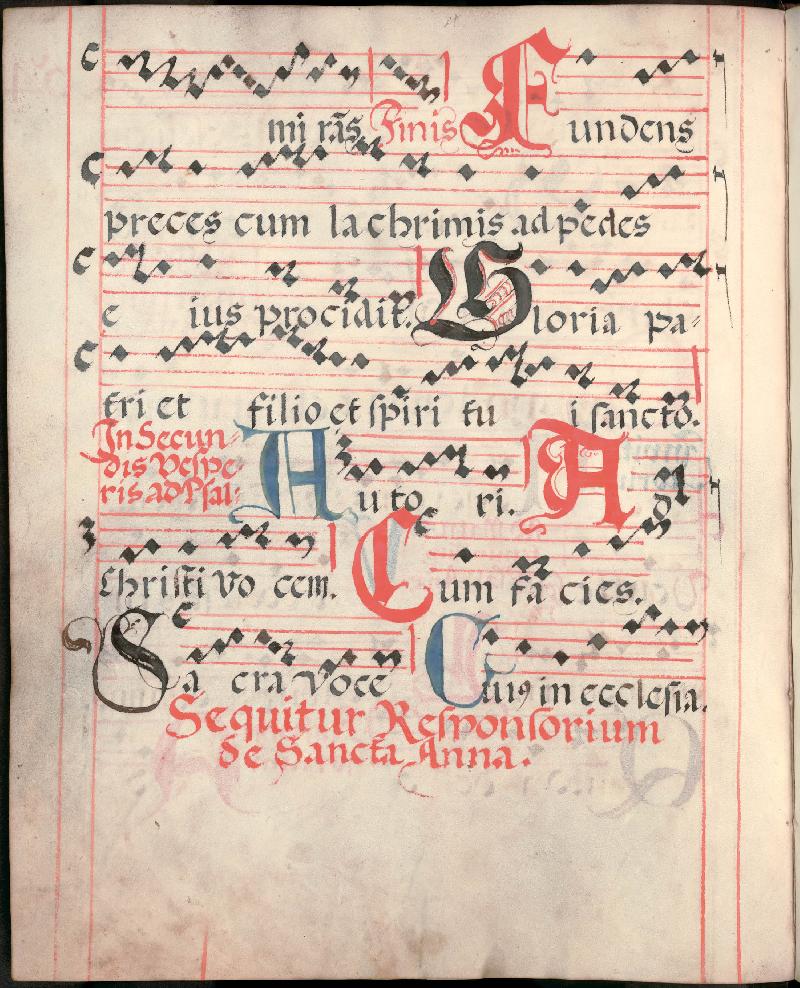 mi rãs. Finis Fundens
preces cum lachrimis ad pedes
e ius procidit. Gloria pa-
tri et filio et spiri tu i sancto.
In Secun-
dis Vespe-
ris ad Psal-
Auto ri. A
Christi vo cem. Cum fa cies.
Sa cra voce Cuiꝰ in ecclesia.
Sequitur Responsorium
de Sancta Anna.